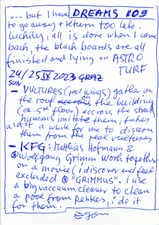 ... but I have DREAMS 109
to go away & return too late.
luckiley, all is done when I come
back, the black boards are all
finished and lying on ASTRO
TURF
24/25 IX 2023 GRAZ
- VULTURES (no wings) gather on
the roof the building
(a 5th floor) across the street
humans imitate them, takes
a lot of a while for me to discern
them from the real vultures
- KFG: Matthias Hofmann &
Wolfgang Grimm work together
on a movie (i discover and feel
excluded @ "GRIMMUS". I use
a big vacuum cleaner to clean
a pool from pebbles, i do it
for them)